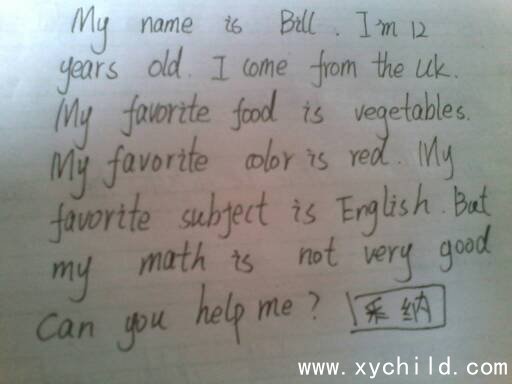 My name is Bill. I'm 12
years old. I come from the UK.
My favorite food is vegetables.
My favorite color is red. My
favorite subject is English. But
my math is not very good
Can you help me? 采纳
www.xychild.com